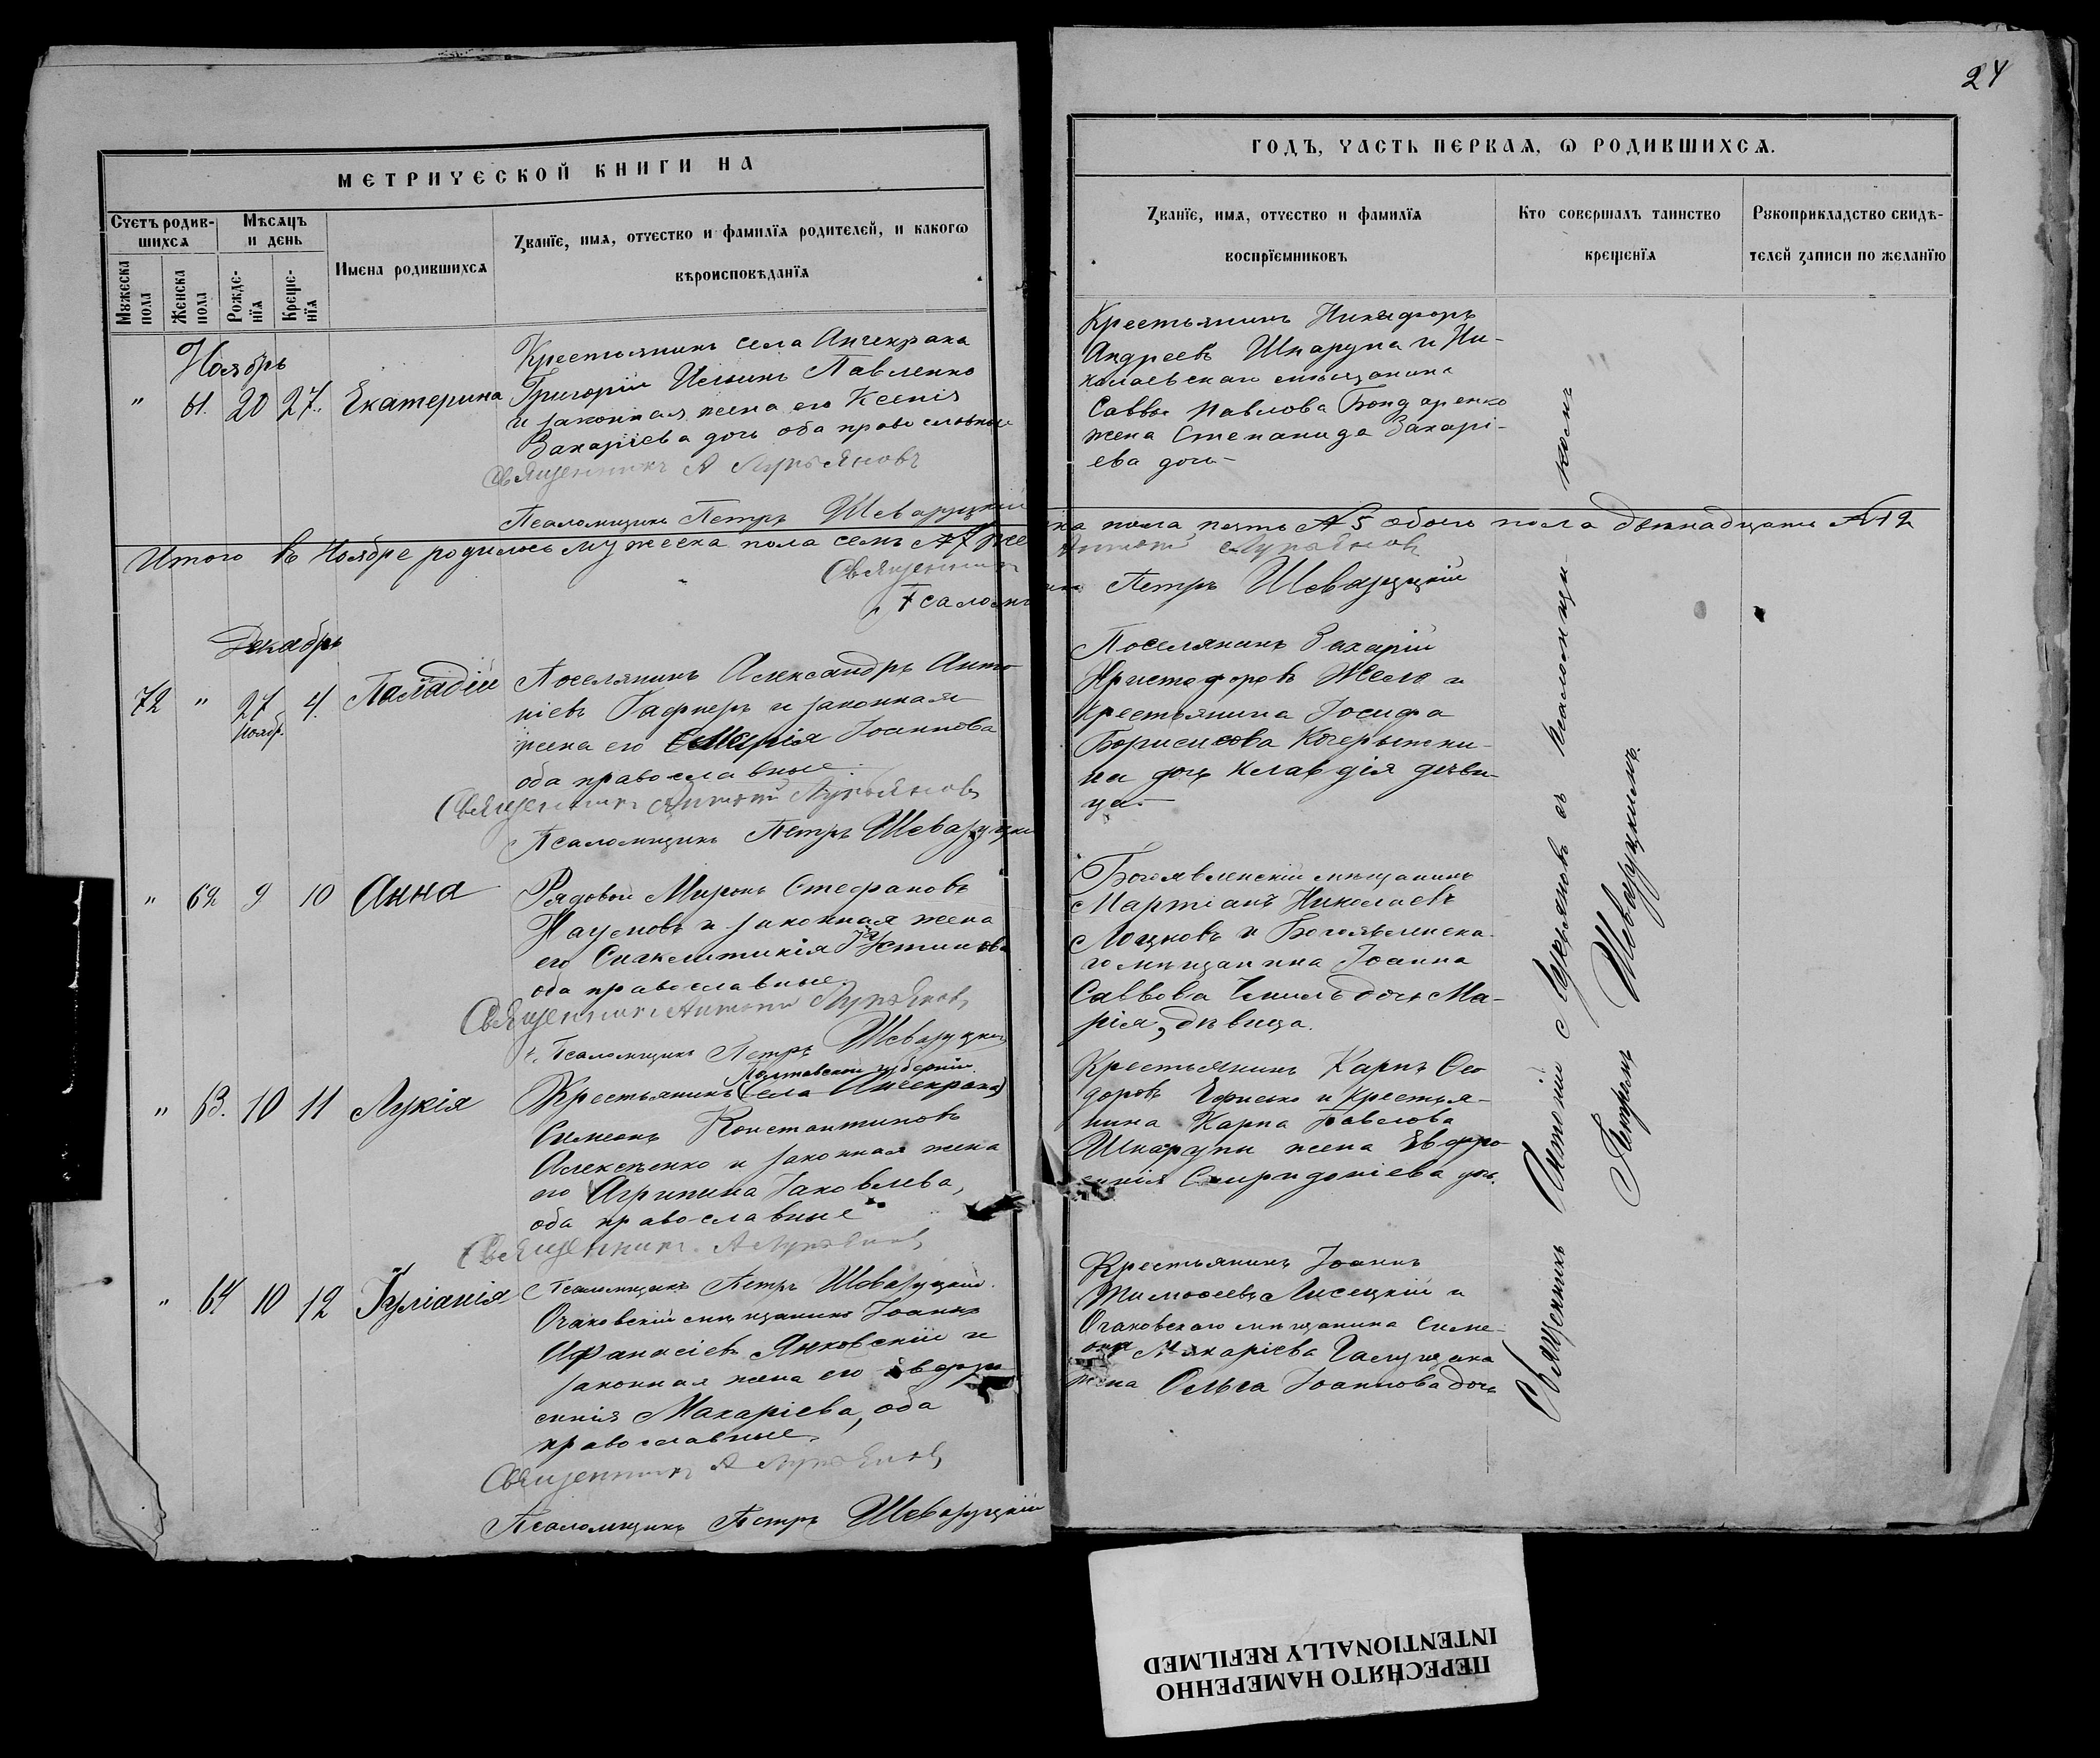 24
МЕТРИЧЕСКОЙ КНИГИ НА
ГОДЪ, ЧАСТЬ ПЕРВАЯ, Ѡ РОДИВШИХСЯ.
Счетъ родив-
шихся
Мѣсяцъ
и день
Мужеска
пола
Женска
пола
Рожде-
нїя
Креще-
нїя
Имена родившихся
Званїе, имя, отчество и фамилїя родителей, и какогѡ
вѣроисповѣданїя
Званїе, имя, отчество и фамилїя
воспрїемниковъ
Кто совершалъ таинство
крещенїя
Рукоприкладство свидѣ-
телей записи по желанїю
Ноябрь
" 61. 20 27. Екатерина
Крестьянинъ села Анчекрака
Григорій Ильинъ Павленко
и законная жена его Ксенія
Захаріева дочь оба православные
Священникъ А Лукьяновъ
Псаломщикъ Петръ Шеваруцкій
Крестьянинъ Никифоръ
Андреевъ Шкарупа и Ни-
колаевскаго мѣщанина
Саввы Павлова Бондаренко
жена Степанида Захарі-
ева дочь
Итого въ Ноябре родилось мужеска пола семь №7 же
ска пола пять №5 обоего пола двенадцать №12
Священникъ Антоній Лукьяновъ
Псаломщикъ Петръ Шеваруцкій
Декабрь
72 " 27 4. Палладій
Ноябр.
Поселянинъ Александръ Анто
ніевъ Гафнеръ и законная
жена его Марія Іоаннова
оба православные.
Священникъ Антоній Лукьяновъ
Псаломщикъ Петръ Шеваруцкій
Поселянинъ Захарій
Христофоровъ и
крестьянина Іосифа
Борисова
на дочь Клавдія дѣви-
ца.
" 62 9 10 Анна
Рядовой Миронъ Стефановъ
Наумовъ и законная жена
его Синклитикія Іустинова
оба православные.
Священникъ Антоній Лукьяновъ
Псаломщикъ Петръ Шеваруцкій
Богоявленскій мѣщанинъ
Мартіанъ Николаевъ
и Богоявленска-
го мѣщанина Іоанна
Саввова дочь Ма-
рія, дѣвица.
" 63. 10 11 Лукія
Полтавской губерніи
Крестьянинъ (села Анчекрака)
Симеонъ Константиновъ
Алексѣенко и законная жена
его Агрипина Іаковлева,
оба православные
Священникъ А Лукьяновъ
Псаломщикъ Петръ Шеваруцкій
Крестьянинъ Карпъ Ѳео
доровъ и крестья-
нина Карпа Павлова
Шкарупы жена Евфро-
синія Спиридоніева дочь.
" 64 10 12 Іуліанія
Очаковскій мѣщанинъ Іоаннъ
Афанасіевъ Янковскій и
законная жена его Евфро
синія Макаріева, оба
православные.
Священникъ А Лукьяновъ
Псаломщикъ Петръ Шеваруцкій
Крестьянинъ Іоаннъ
Тимоѳеевъ Лисецкій и
Очаковскаго мѣщанина Симе-
она Макаріева
жена Ольга Іоаннова дочь
Священникъ Антоній Лукьяновъ съ псаломщи- комъ
Петромъ Шеваруцкимъ.
ПЕРЕСНЯТО НАМЕРЕННО
INTENTIONALLY REFILMED